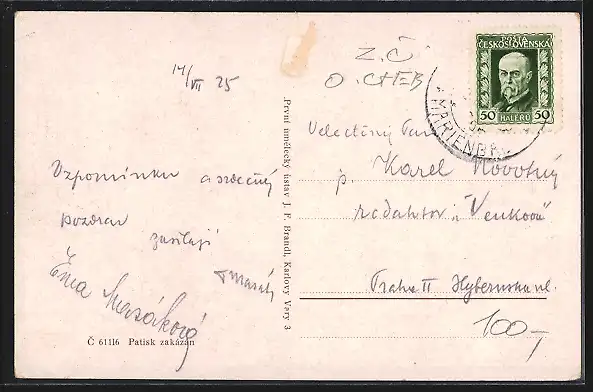 14/VII 25
Vzpomínku a srdečný
pozdrav
zasílají
Ema Masáková
F Masák
Č 61116 Patisk zakázán
První umělecký ústav J. F. Brandl, Karlovy Vary 3
Z. Č.
O. CHEB
POŠTA
ČESKOSLOVENSKÁ
50 HALÉŘŮ 50
MARIENBA
Velectěný Pan
p. Karel Novotný
redaktor „Venkova"
Praha II Hybernská ul.
100,-